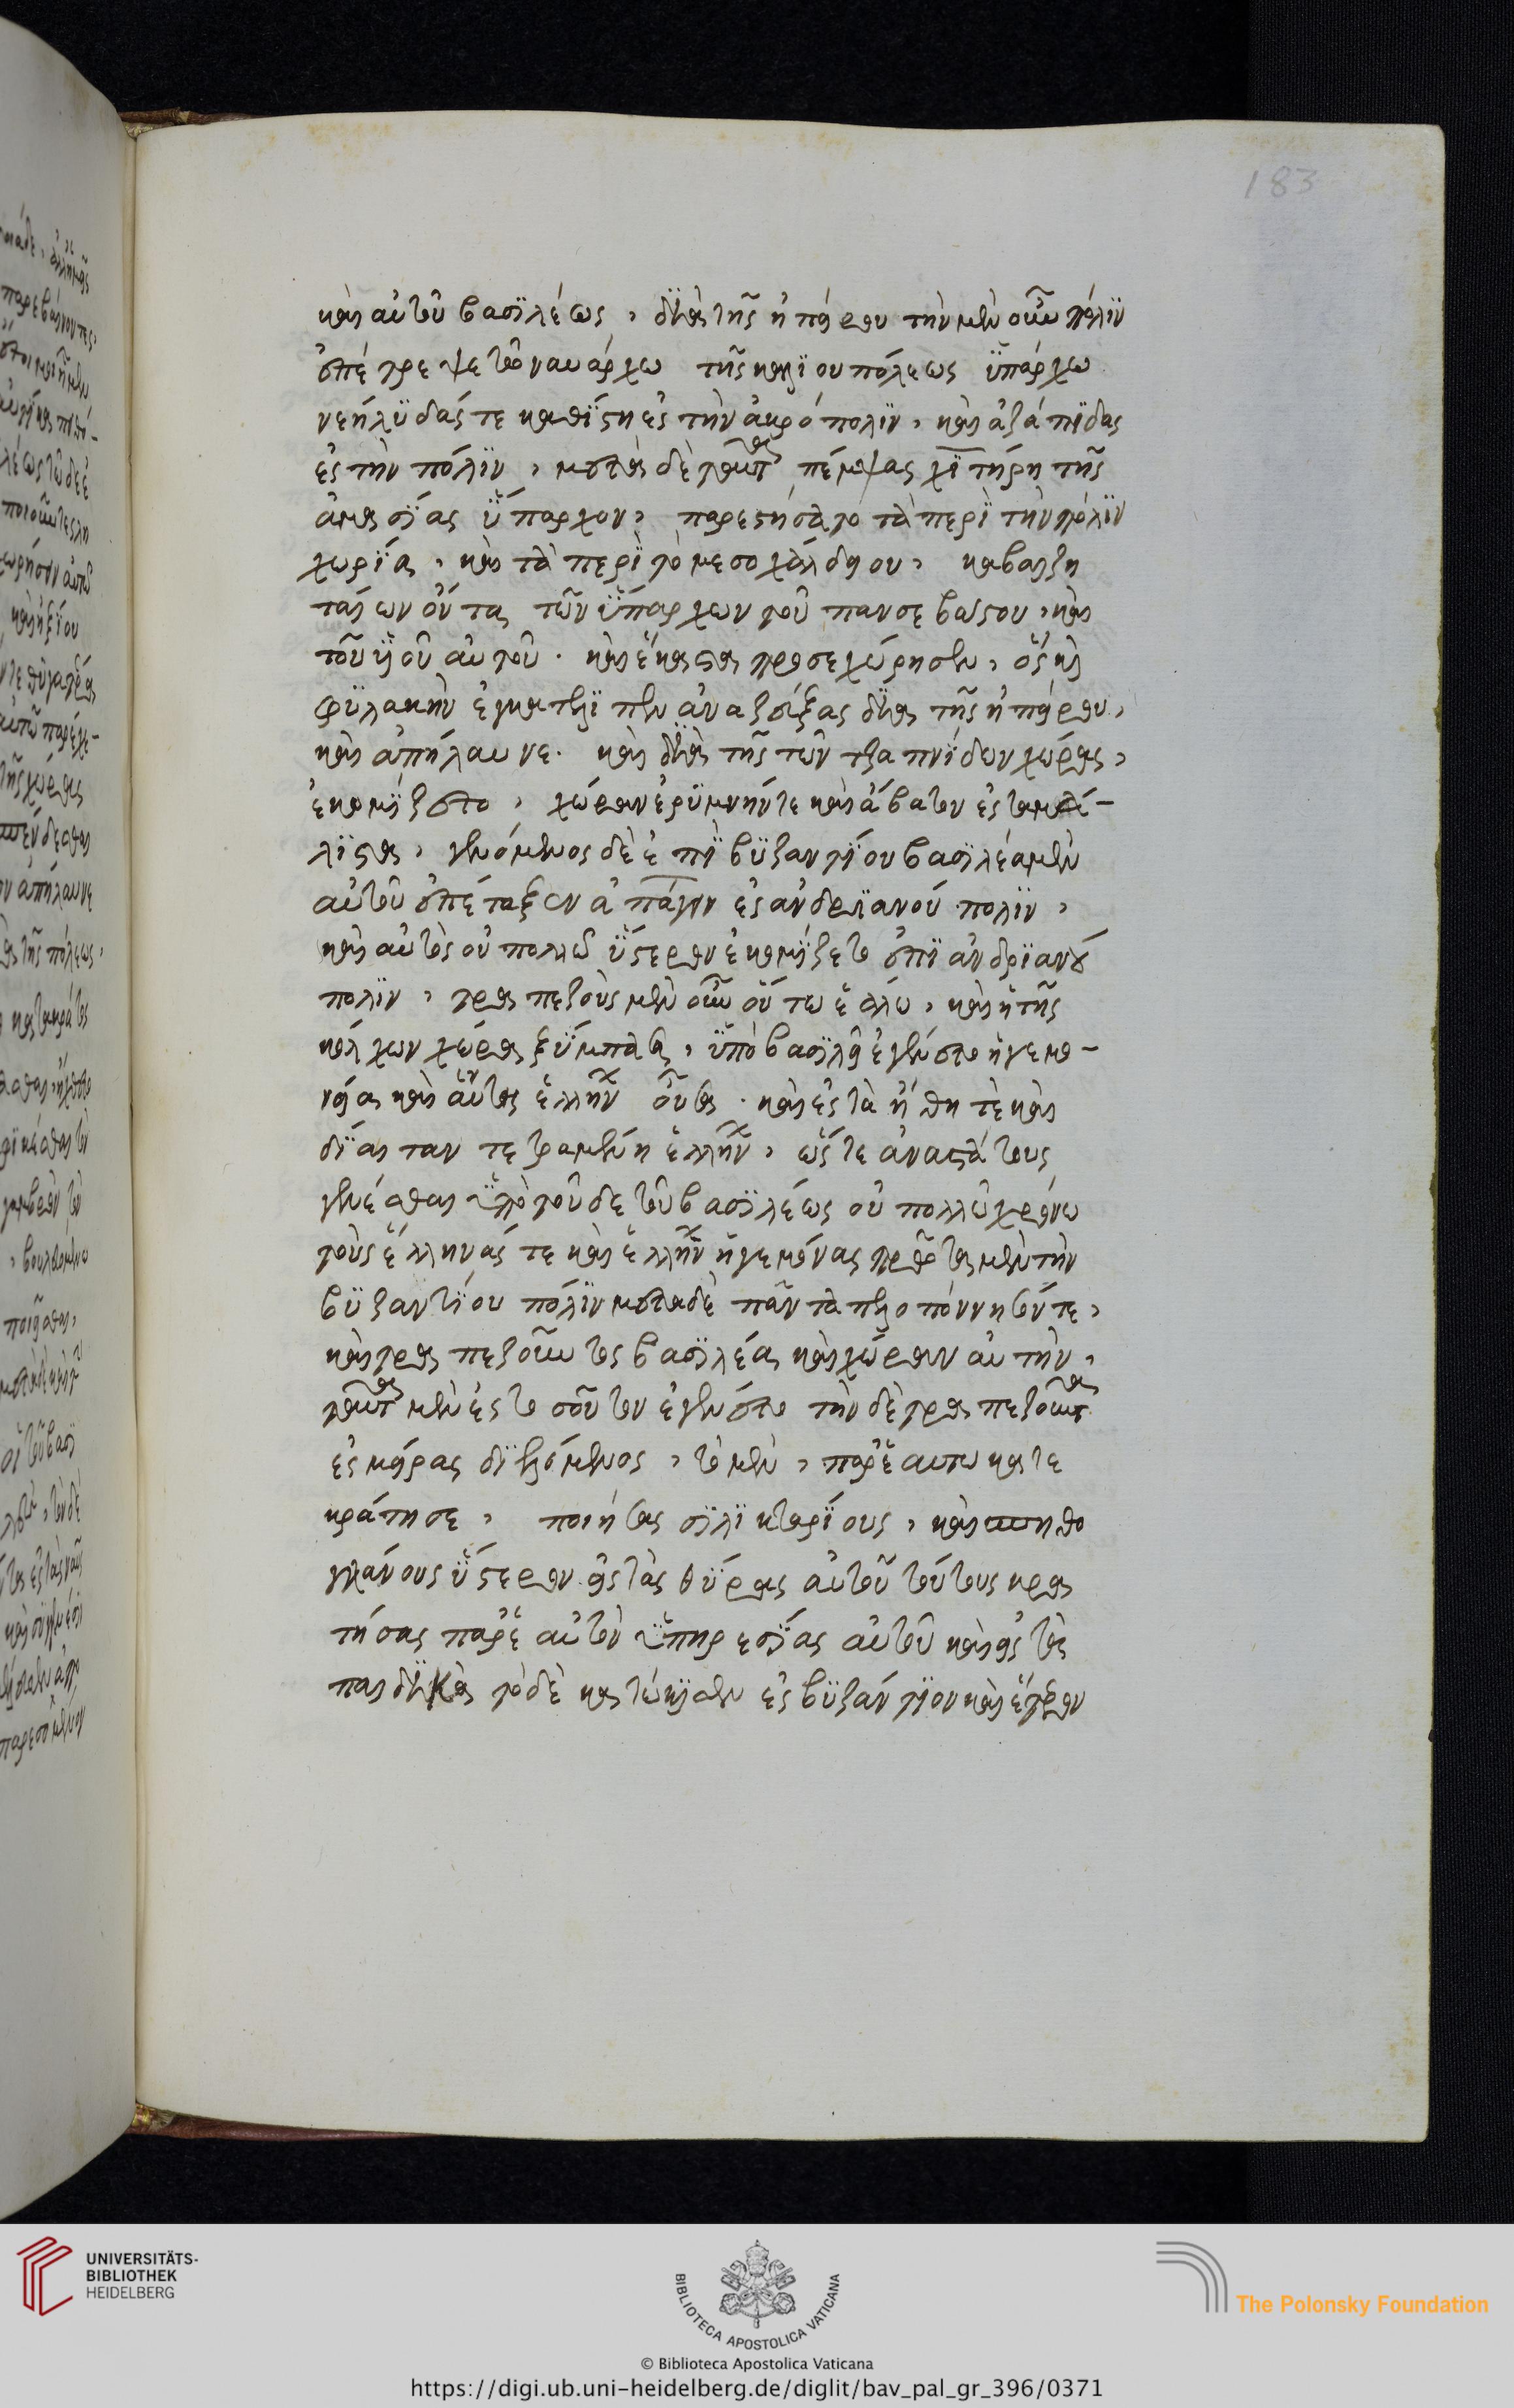 καὶ αὐτοῦ βασϊλέως, δϊὰ τῆς ἠπείρου τὴν μὲν οὖν πόλϊν
ἐπέτρεψε τῶ ναυάρχω τῆς καλλϊουπόλεως ϋπάρχω
νεήλϋδάς τε καθΐστη ἐς τὴν ἀκρόπολϊν, καὶ ἀζάπϊδας
ἐς τὴν πόλϊν, μετὰ δὲ ταῦτα πέμψας χϊτήρη τῆς
ἀμασΐας ὕπαρχον, παρεστήσατο τὰ περϊ τὴν πόλϊν
χωρΐα, καὶ τὰ περϊ τὸ μεσοχάλδιου, καβαζη
ταίων ὄντα τῶν ϋπάρχων τοῦ πανσεβάστου, καὶ
τοῦ ϋἱοῦ αὐτοῦ. καὶ ἕκαστα προσεχώρησεν, ὃς καὶ
φϋλακὴν ἐγκαταλϊπὼν ἀναζεύξας δϊὰ τῆς ἠπείρου,
καὶ ἀπήλαυνε. καὶ δϊὰ τῆς τῶν τζαπνΐδων χώρας,
ἐκομΐζετο, χώραν ἐρϋμνήν τε καὶ ἄβατον ἐς τὰ μά-
λϊστα, γενόμενος δὲ ἐπϊ βϋζαντΐου βασϊλέα μὲν
αὐτοῦ ἐπέταξεν ἀπάγειν ἐς ἀνδρϊανού πολϊν,
καὶ αὐτὸς οὐ πολλῶ ὕστερον ἐκομΐζετο ἐπϊ ἀνδρϊανοῦ
πολϊν, τραπεζοὺς μὲν οὖν οὕτω ἑάλω, καὶ ἡ τῆς
κόλχων χώρας ξΰμπασα, ϋπὸ βασϊλεῖ ἐγένετο ἡγεμο-
νΐα καὶ αὕτη ἑλλήνων οὖσα. καὶ ἐς τὰ ἤθη τὲ καὶ
δΐαιταν τετραμένη ἑλλήνων, ὥστε ἀναστάτους
γενέσθαι ϋπὸ τοῦδε τοῦ βασϊλέως οὐ πολλῶ χρόνω
τοὺς ἕλληνάς τε καὶ ἑλλήνων ἡγεμόνας πρῶτα μὲν τὴν
βϋζαντΐου πόλϊν μετὰ δὲ πᾶν τὰ πελοπόννησόν τε,
καὶ τραπεζοῦντος βασϊλέα καὶ χώραν αὐτὴν,
ταῦτα μὲν ἐς τοσοῦτον ἐγένετο τὴν δὲ τραπεζοῦντα
ἐς μοίρας δϊελόμενος, τὸ μὲν, παρ' ἑαυτω κατε
κράτησε, ποιήσας σϊλϊκταρΐους, καὶ σπηθο
γλάνους ὕστερον ἐς τὰς θΰρας αὐτοῦ τούτους κρα
τήσας παρ' ἑαυτὸν ϋπηρεσΐας αὐτοῦ καὶ ἐς τὰ
παιδϊκὰ τὸ δὲ κατώκϊσεν ἐς βϋζάντϊον καὶ ἕτερον
183
UNIVERSITÄTS-
BIBLIOTHEK
HEIDELBERG
BIBLIOTECA APOSTOLICA VATICANA
The Polonsky Foundation
© Biblioteca Apostolica Vaticana
https://digi.ub.uni-heidelberg.de/diglit/bav_pal_gr_396/0371